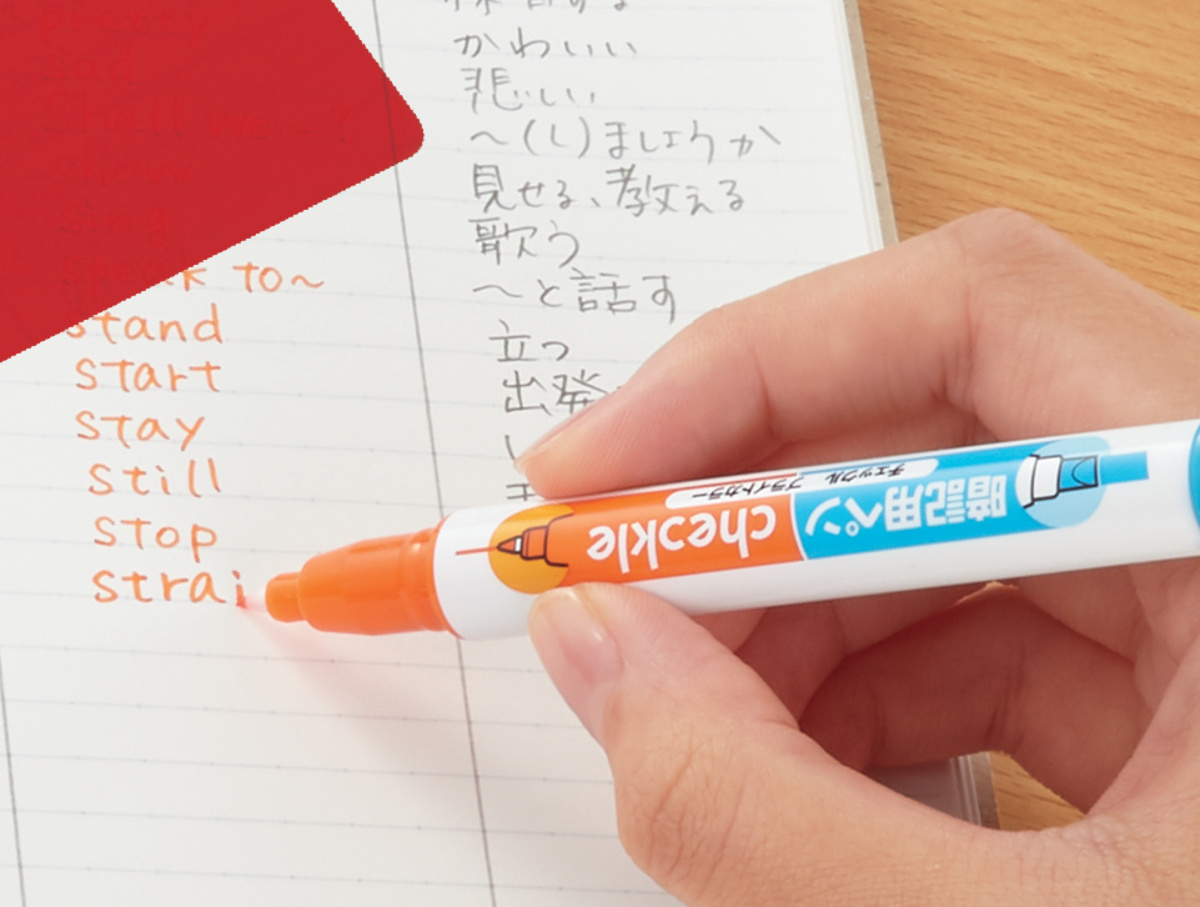 pretty
sad
Shall we~?
show
sing
speak to~
stand
start
stay
still
stop
strai
かわいい
悲しい
~(し)ましょうか
見せる、教える
歌う
~と話す
立つ
出発
checkle
暗記用ペン
チェックル ブライトカラー